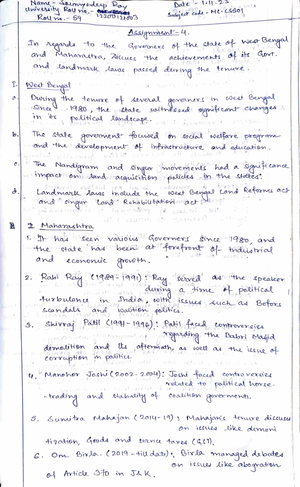 Name - Soumyodeep Dey
Date - 9.11.23
University Roll no.- 12200121003
Subject code - MC-CS501
Roll no - 69
Assignment - 4.
In regards to the Governers of the state of West Bengal
and Maharastra, discuss the achievements of its Govt.
and landmark laws passed during the tenure.
1. West Bengal
a. During the tenure of several governers in West Bengal
since 1980, the state witnessed significant changes
in its political landscape.
b. The state goverment focused on social welfare program
and the development of infrastructure and education.
c. The Nandigram and Singur movements had a significance
impact on land acquisition policies in the states.
d. Landmark laws include the West Bengal Land Reforms act
and Singur Land Rehabilitation act
2 Maharashtra
1. It has seen various Governers since 1980, and
the state has been at forefront of industrial
and economic growth.
2. Rabi Ray (1989-1991): Ray served as the speaker
during a time of political
turbulence in India, with issues such as Bofors
scandals and coalition politics.
3. Shivraj Patil (1991-1996): Patil faced controversies
regarding the Babri Masjid
demolition and its aftermath, as well as the issue of
corruption in politics.
4. Manohar Joshi (2002-2004): Joshi faced controversies
related to political horse-
-trading and stability of coalition goverments.
5. Sumitra Mahajan (2014-19): Mahajan's tenure discuss
on issues like demoni
tization, Goods and service taxes (GST).
6. Om. Birla. (2019-till date): Birla managed debates
on issues like abrogation
of Article 370 in J&K.